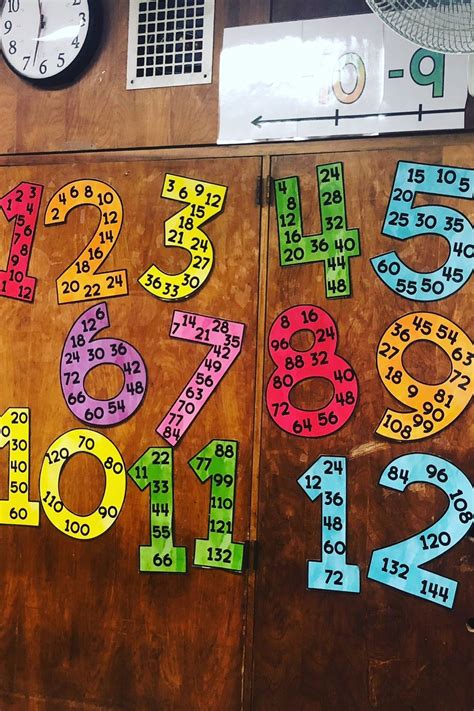 -10 -9
1 2 3 4 5 6 7 8 9 10 11 12
2 4 6 8 10 12 14 16 18 20 22 24
3 6 9 12 15 18 21 24 27 30 33 36
4 8 12 16 20 24 28 32 36 40 44 48
5 10 15 20 25 30 35 40 45 50 55 60
6 12 18 24 30 36 42 48 54 60 66 72
7 14 21 28 35 42 49 56 63 70 77 84
8 16 24 32 40 48 56 64 72 80 88 96
9 18 27 36 45 54 63 72 81 90 99 108
10 20 30 40 50 60 70 80 90 100 110 120
11 22 33 44 55 66 77 88 99 110 121 132
12 24 36 48 60 72 84 96 108 120 132 144